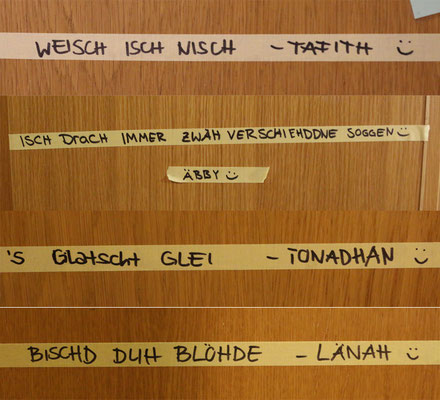 WEISCH ISCH NISCH - TAFITH
ISCH DrACH IMMER ZWÄH VERSCHIEHDDNE SOGGEN
ÄBBY
'S GLATSCHT GLEI - TONADHAN
BISCHD DUH BLÖHDE - LÄNAH